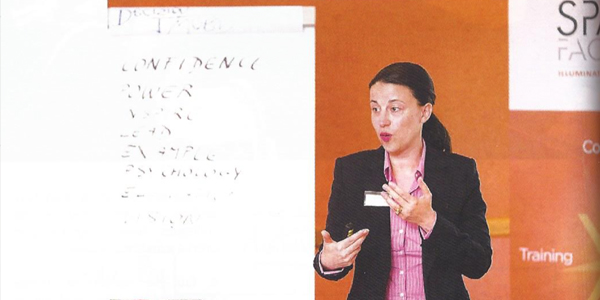 CONFIDENCE
POWER
INSPIRE
LEAD
EXAMPLE
PSYCHOLOGY
SPA
FAC
ILLUMINAT
Co
Training